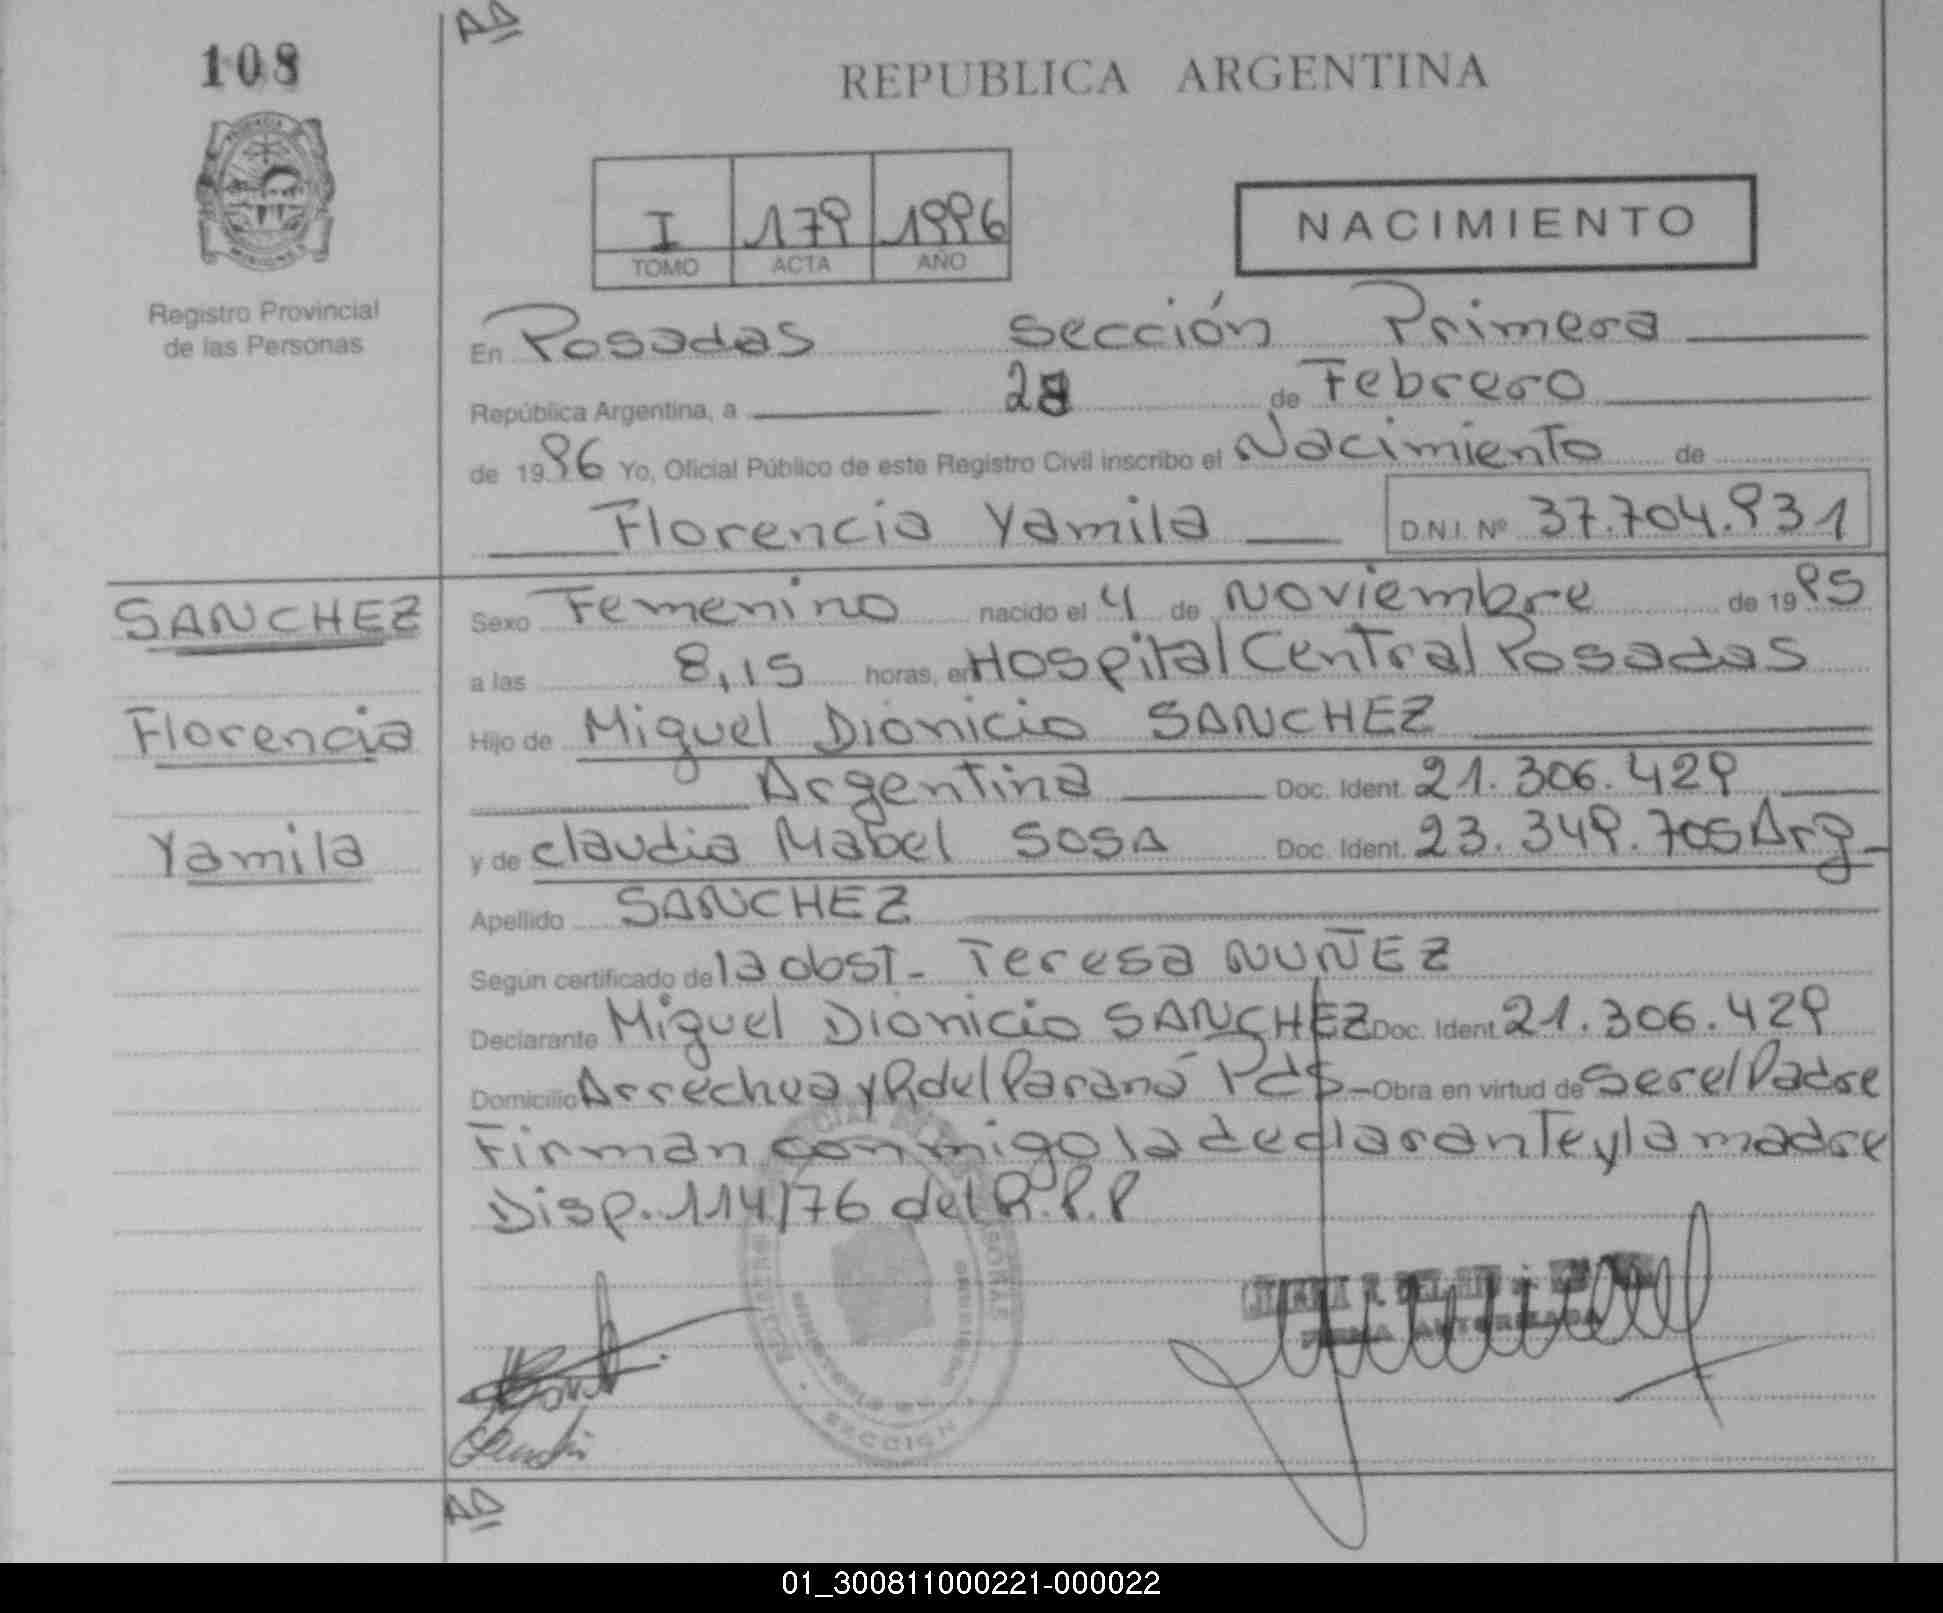 108
AD
REPUBLICA ARGENTINA
I 179 1996
TOMO ACTA AÑO
NACIMIENTO
Registro Provincial
de las Personas
En Posadas sección Primera
República Argentina, a 28 de Febrero
de 1996 Yo, Oficial Público de este Registro Civil inscribo el Nacimiento de
Florencia Yamila D.N.I. Nº 37.704.931
SANCHEZ
Florencia
Yamila
Sexo Femenino nacido el 4 de Noviembre de 1995
a las 8,15 horas, en Hospital Central Posadas
Hijo de Miguel Dionicio SANCHEZ
Argentina Doc. Ident. 21.306.429
y de claudia Mabel SOSA Doc. Ident. 23.349.705 Arg
Apellido SANCHEZ
Según certificado de la obst- Teresa NUÑEZ
Declarante Miguel Dionicio SANCHEZ Doc. Ident. 21.306.429
Domicilio Arrechea y R del Paraná Pds- Obra en virtud de ser el Padre
Firman con migo la declarante y la madre
Disp. 114/76 del R.P.P
FIRMA AUTORIZADA
SECCION
AD
01_300811000221-000022